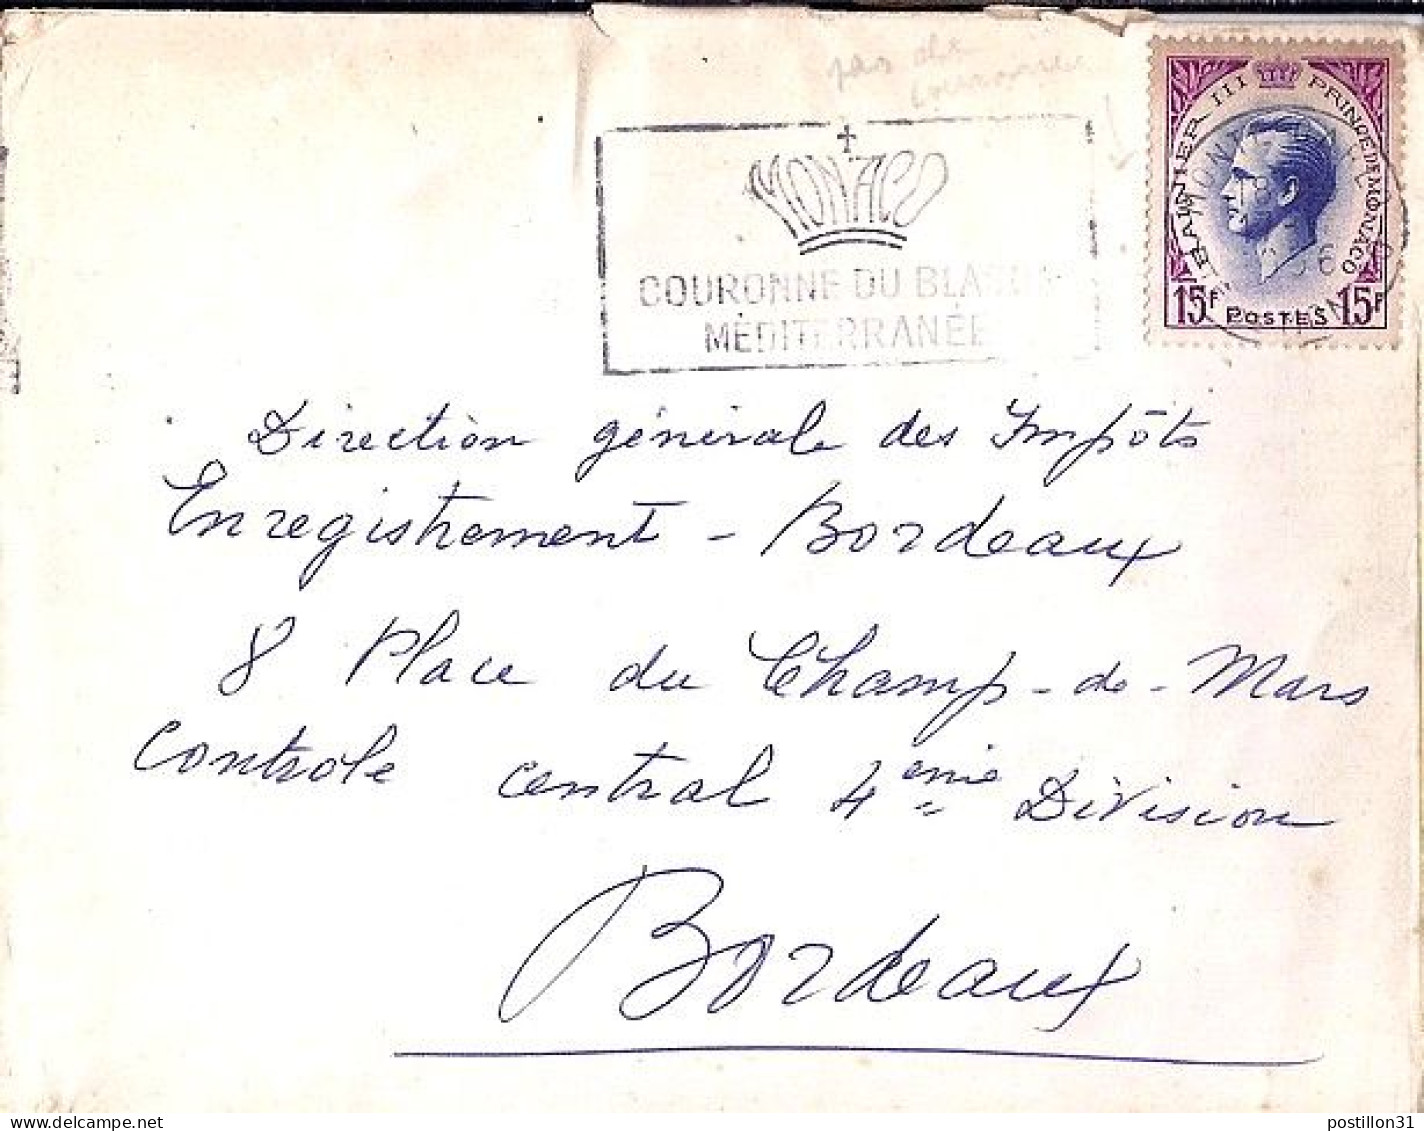 pas de
couronne
MONACO
COURONNE DU BLASON
MÉDITERRANÉE
RAINIER III PRINCE DE MONACO
15F POSTES 15F
Direction générale des Impôts
Enregistrement - Bordeaux
8 Place du Champ-de-Mars
Controle central 4ème Division
Bordeaux
www.delcampe.net
postillon31